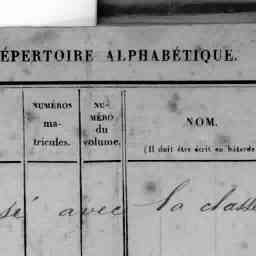 RÉPERTOIRE ALPHABÉTIQUE.
NUMÉROS
ma-
tricules.
NU-
MÉRO
du
volume.
NOM.
(Il doit être écrit en bâtarde
avec la classe